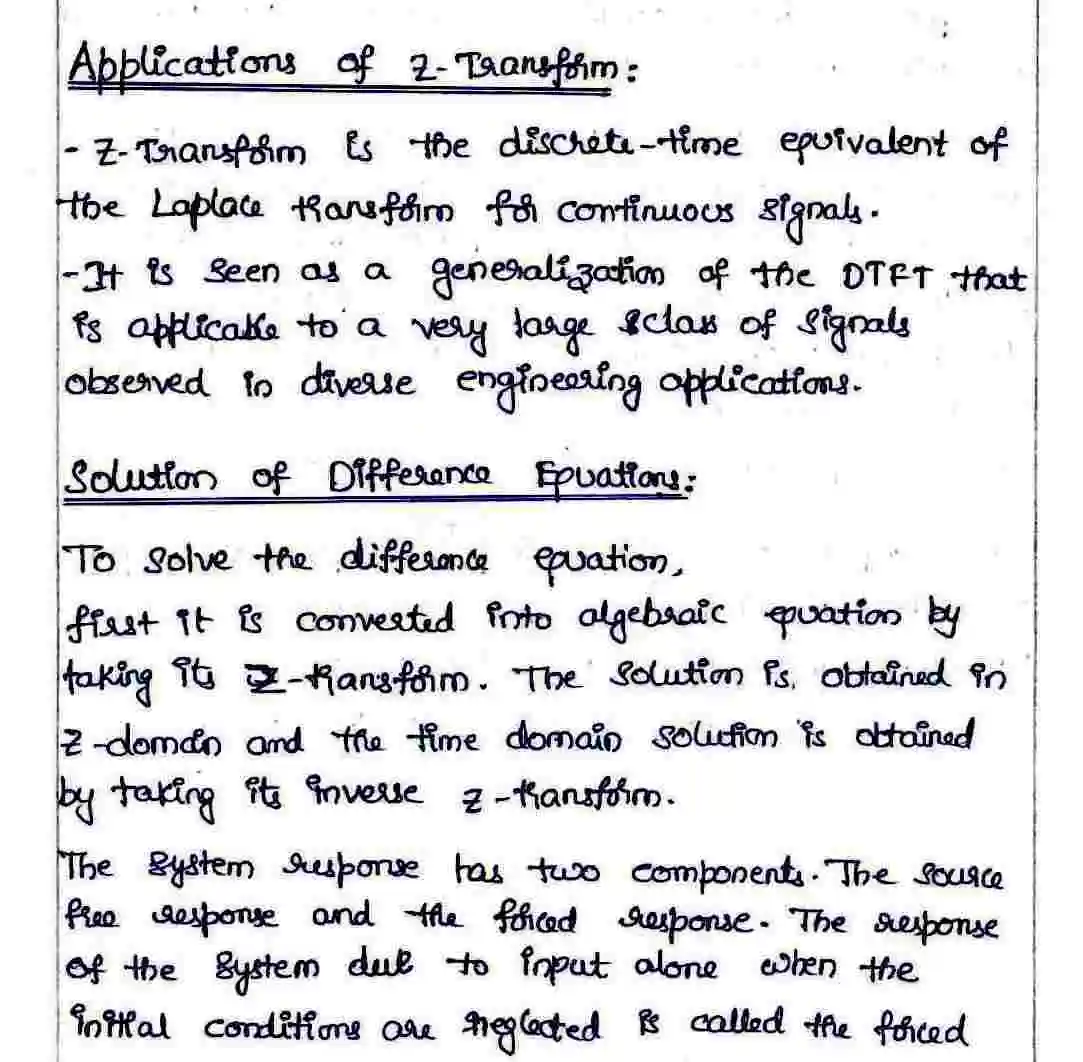 Applications of Z-Transform:
- Z-Transform is the discrete-time equivalent of
the Laplace transform for continuous signals.
- It is seen as a generalization of the DTFT that
is applicable to a very large class of signals
observed in diverse engineering applications.
Solution of Difference Equations:
To solve the difference equation,
first it is converted into algebraic equation by
taking its Z-transform. The solution is obtained in
Z-domain and the time domain solution is obtained
by taking its inverse z-transform.
The system response has two components. The source
free response and the forced response. The response
of the system due to input alone when the
initial conditions are neglected is called the forced